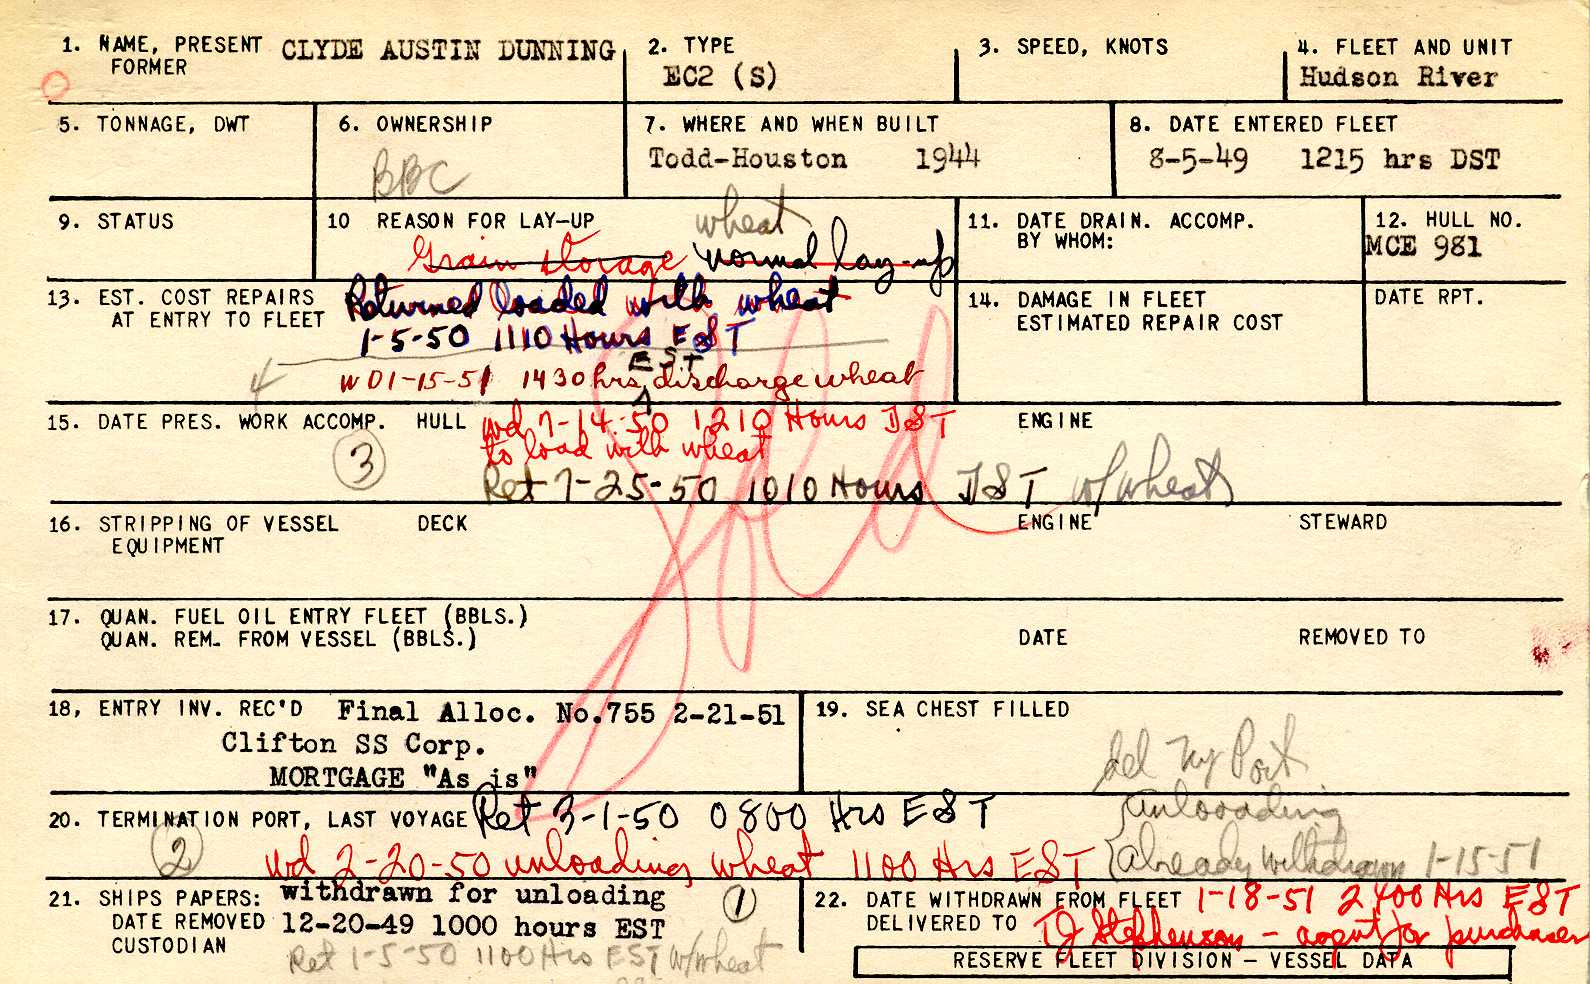 1. NAME, PRESENT CLYDE AUSTIN DUNNING
FORMER
2. TYPE
EC2 (S)
3. SPEED, KNOTS
4. FLEET AND UNIT
Hudson River
5. TONNAGE, DWT
6. OWNERSHIP
BBC
7. WHERE AND WHEN BUILT
Todd-Houston 1944
8. DATE ENTERED FLEET
8-5-49 1215 hrs DST
9. STATUS
10 REASON FOR LAY-UP
wheat
Grain storage normal lay-up
11. DATE DRAIN. ACCOMP.
BY WHOM:
12. HULL NO.
MCE 981
13. EST. COST REPAIRS
AT ENTRY TO FLEET
Returned loaded with wheat
1-5-50 1110 Hours EST
EST
WD 1-15-51 1430 hrs discharge wheat
14. DAMAGE IN FLEET
ESTIMATED REPAIR COST
DATE RPT.
15. DATE PRES. WORK ACCOMP. HULL
wd 7-14-50 1210 Hours DST
to load with wheat
3
Ret 7-25-50 1010 Hours DST w/wheat
ENGINE
Sold
16. STRIPPING OF VESSEL
EQUIPMENT
DECK
ENGINE
STEWARD
17. QUAN. FUEL OIL ENTRY FLEET (BBLS.)
QUAN. REM. FROM VESSEL (BBLS.)
DATE
REMOVED TO
18, ENTRY INV. REC'D Final Alloc. No.755 2-21-51
Clifton SS Corp.
MORTGAGE "As is"
19. SEA CHEST FILLED
del Ny Port
unloading
already withdrawn 1-15-51
20. TERMINATION PORT, LAST VOYAGE Ret 3-1-50 0800 Hrs EST
2 wd 2-20-50 unloading wheat 1100 Hrs EST
21. SHIPS PAPERS: withdrawn for unloading
DATE REMOVED 12-20-49 1000 hours EST
CUSTODIAN
1
Ret 1-5-50 1100 Hrs EST w/wheat
22. DATE WITHDRAWN FROM FLEET 1-18-51 2400 Hrs EST
DELIVERED TO TJ Stephenson - agent for purchaser
RESERVE FLEET DIVISION - VESSEL DATA